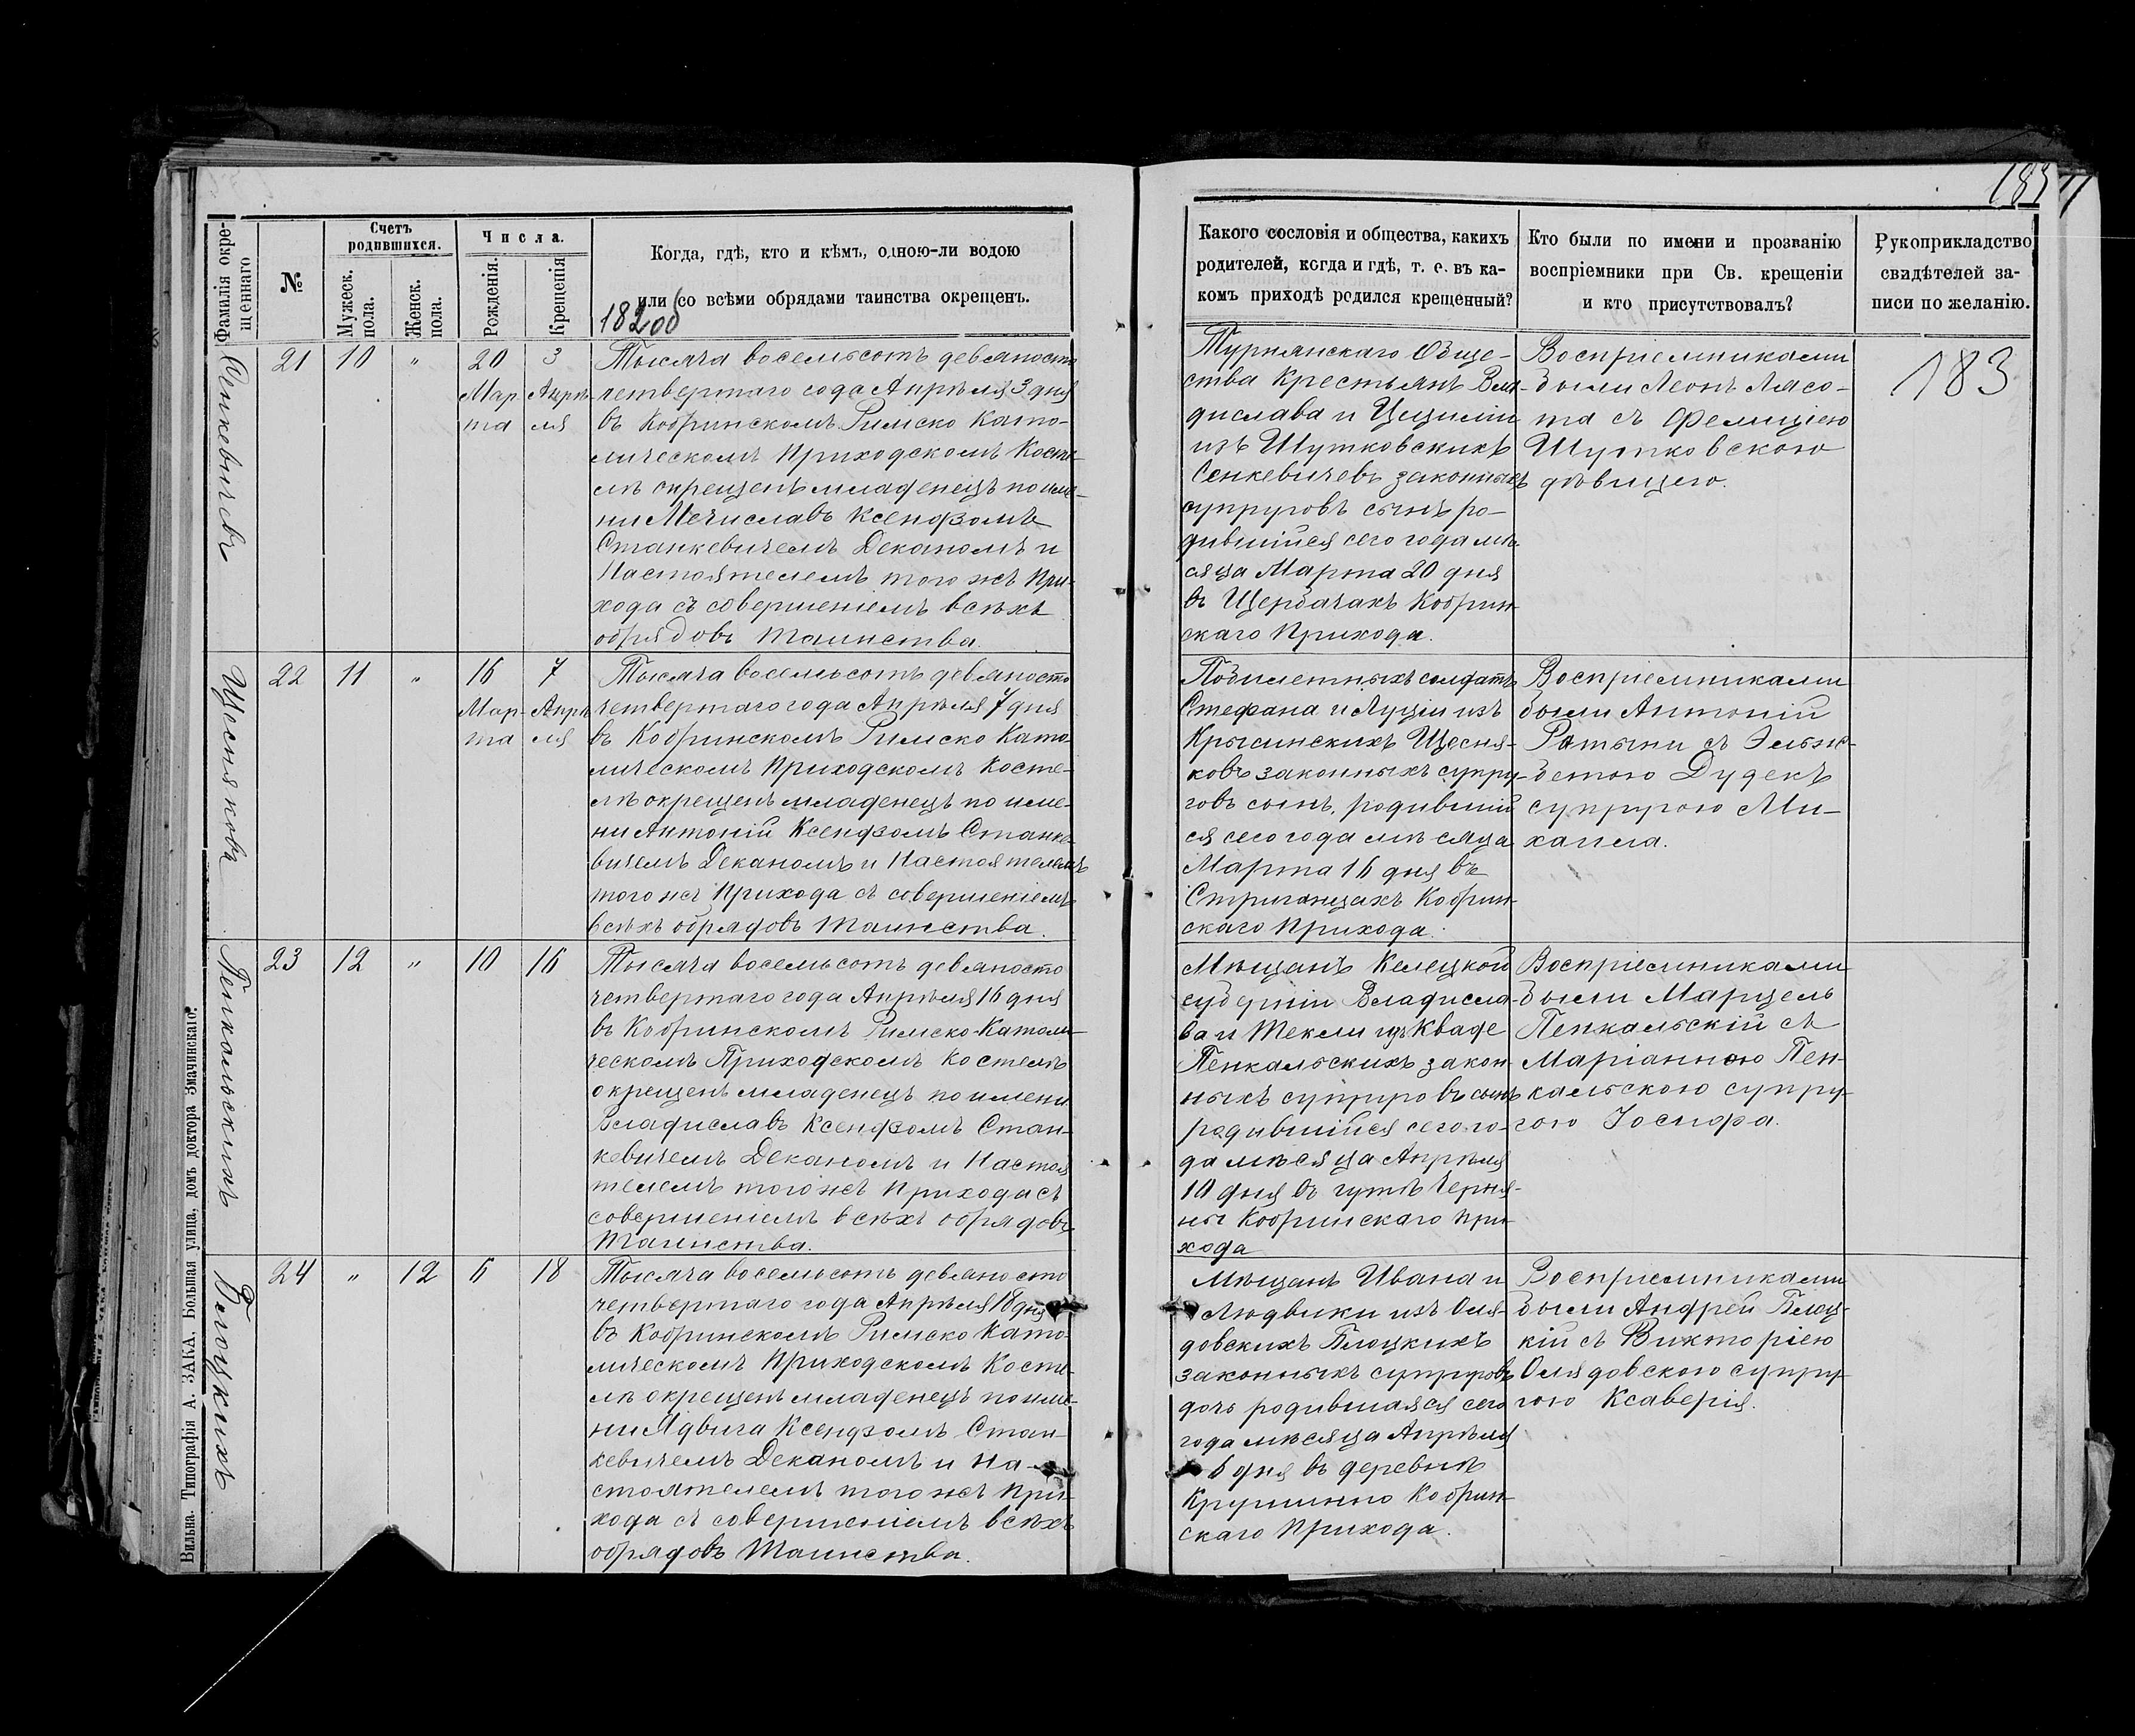 183
Фамилія окре-
щеннаго
№
Счетъ
родившихся.
Мужеск.
пола.
Женск.
пола.
Числа.
Рожденія.
Крещенія
Когда, гдѣ, кто и кѣмъ, одною-ли водою
или со всѣми обрядами таинства окрещенъ.
Какого сословія и общества, какихъ
родителей, когда и гдѣ, т. е. въ ка-
комъ приходѣ родился крещенный?
Кто были по имени и прозванію
воспріемники при Св. крещеніи
и кто присутствовалъ?
Рукоприкладство
свидѣтелей за-
писи по желанію.
Сенкевичевъ
21
10
"
20
Мар
та
3
Апрѣ-
ля
Тысяча восемьсотъ девяносто
четвертаго года Апрѣля 3 дня
въ Кобринскомъ Римско Като-
лическомъ Приходскомъ Косте-
лѣ окрещенъ младенецъ по име-
ни Мечиславъ Ксендзомъ
Станкевичемъ Деканомъ и
Настоятелемъ того же При-
хода съ совершеніемъ всѣхъ
обрядовъ Таинства.
Турнянскаго Обще-
ства Крестьянъ Вла-
дислава и Цециліи
изъ Шутковскихъ
Сенкевичевъ законныхъ
супруговъ сынъ ро-
дившійся сего года мѣ-
сяца Марта 20 дня
въ Щербачахъ Кобрин-
скаго Прихода.
Воспріемниками
были Леонъ Лясо-
та съ Фелиціею
Шутковскою
дѣвицею.
183
Щеснякова
22
11
"
16
Мар-
та
7
Апрѣ
ля
Тысяча восемьсотъ девяносто
четвертаго года Апрѣля 7 дня
въ Кобринскомъ Римско Като-
лическомъ Приходскомъ Косте-
лѣ окрещенъ младенецъ по име-
ни Антоній Ксендзомъ Станке-
вичемъ Деканомъ и Настоятелемъ
того же Прихода съ совершеніемъ
всѣхъ обрядовъ Таинства.
Побилетныхъ солдатъ
Стефана и Луціи изъ
Крысинскихъ Щесня-
ковъ законныхъ супру-
говъ сынъ, родившій
ся сего года мѣсяца
Марта 16 дня въ
Стриганцахъ Кобрин-
скаго Прихода.
Воспріемниками
были Антоній
Ратыни съ Эльж-
бетою Дудекъ
супругою Ми-
хаила.
Пенкальскихъ
23
12
"
10
16
Тысяча восемьсотъ девяносто
четвертаго года Апрѣля 16 дня
въ Кобринскомъ Римско-Католи-
ческомъ Приходскомъ Костелѣ
окрещенъ младенецъ по имени
Владиславъ Ксендзомъ Стан-
кевичемъ Деканомъ и Настоя
телемъ того же Прихода съ
совершеніемъ всѣхъ обрядовъ
Таинства.
Мѣщанъ Келецкой
губерніи Владисла-
ва и Текли изъ Кваде
Пенкальскихъ закон-
ныхъ супруговъ сынъ
родившійся сего го-
да мѣсяца Апрѣля
10 дня въ гутѣ Черня-
ны Кобринскаго При-
хода
Воспріемниками
были Марцель
Пенкальскій съ
Маріанною Пен-
кальскою супру-
гою Іосифа.
Блоцкихъ
24
"
12
6
18
Тысяча восемьсотъ девяносто
четвертаго года Апрѣля 18 дня
въ Кобринскомъ Римско Като-
лическомъ Приходскомъ Косте-
лѣ окрещенъ младенецъ по име-
ни Ядвига Ксендзомъ Стан-
кевичемъ Деканомъ и На-
стоятелемъ того же При-
хода съ совершеніемъ всѣхъ
обрядовъ Таинства.
Мѣщанъ Ивана и
Людвики изъ Оля-
довскихъ Блоцкихъ
законныхъ супруговъ
дочь родившаяся сего
года мѣсяца Апрѣля
6 дня въ деревнѣ
Крупчино Кобрин-
скаго Прихода.
Воспріемниками
были Андрей Блоц-
кій съ Викторіею
Олядовскою супру-
гою Ксаверія.
Вильна. Типографія А. ЗАКА. Большая улица, домъ доктора Змачинскаго.